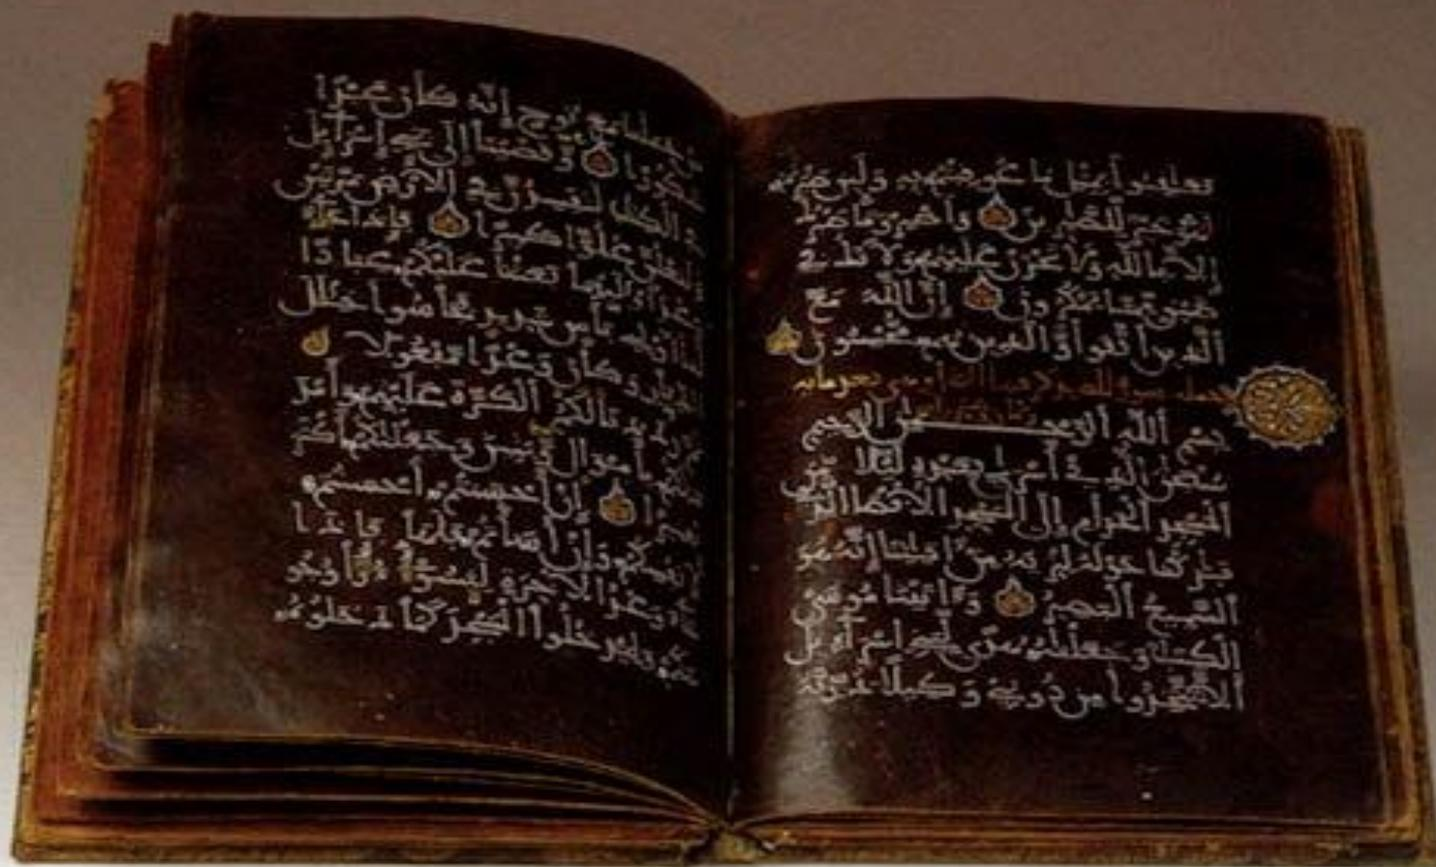 فعاقبوا بمثل ما عوقبتم به ولئن صبرتم
لهو خير للصبرين واصبر وما صبرك
إلا بالله ولا تحزن عليهم ولا تك في
ضيق مما يمكرون إن الله مع
الذين اتقوا والذين هم محسنون
بسم الله الرحمن الرحيم
سبحن الذي أسرى بعبده ليلا من
المسجد الحرام إلى المسجد الاقصا الذي
بركنا حوله لنريه من ءايتنا إنه هو
السميع البصير وءاتينا موسى
الكتب وجعلنه هدى لبني إسراءيل
ألا تتخذوا من دوني وكيلا ذرية
من حملنا مع نوح إنه كان عبدا
شكورا وقضينا إلى بني إسراءيل
في الكتب لتفسدن في الارض مرتين
ولتعلن علوا كبيرا فإذا جاء
وعد أوليهما بعثنا عليكم عبادا
لنا أولي بأس شديد فجاسوا خلل
الديار وكان وعدا مفعولا
ثم رددنا لكم الكرة عليهم وأمد
دنكم بأمول وبنين وجعلنكم أكثر
نفيرا إن أحسنتم أحسنتم
لأنفسكم وإن أسأتم فلها فإذا
جاء وعد الاخرة ليسوءوا وجو
هكم وليدخلوا المسجد كما دخلوه